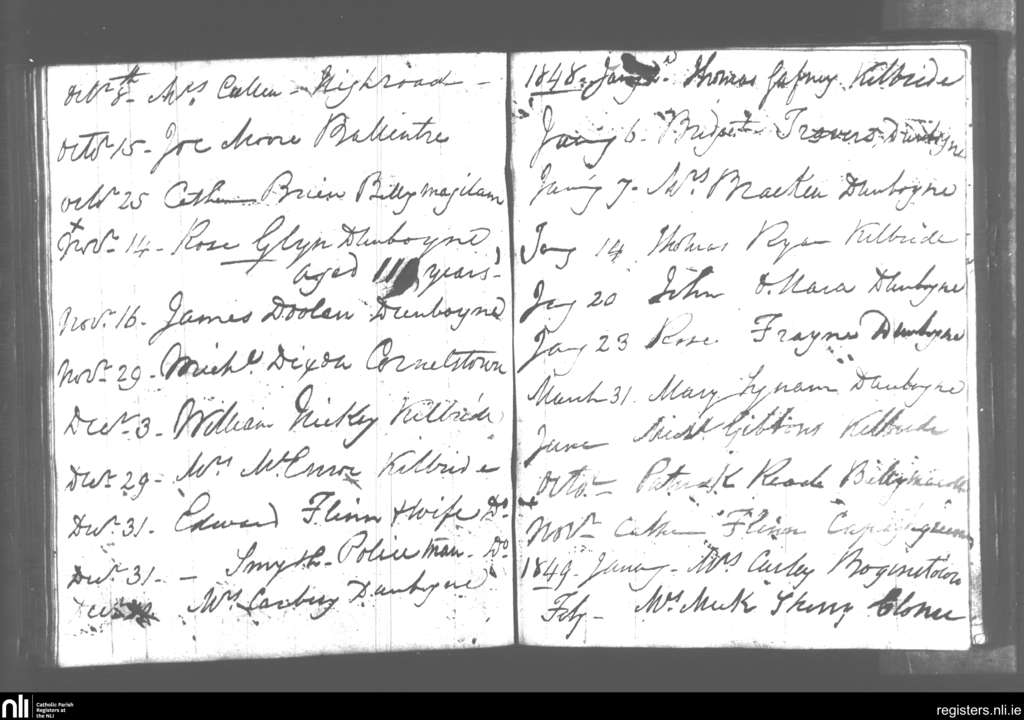 Octbr 8th - Mrs Cullen - Highroad -
Octbr 15 - Joe Moore Ballintre
Octbr 25 Cathern Brien Billymagilann
Novbr 14 - Rose Glyn Dunboyne
aged 111 years -
Novr 16 - James Doolan Dunboyne
Novr 29 - Michl Dixon Cornelstown
Decr 3 - William Hickey Kilbride
Decr 29 - Mrs McEnroe Kilbride
Decr 31 - Edward Flinn & wife Do
Decr 31 - - Smyth - Police man - Do
Mrs Carbery Dunboyne
1848 - Thomas Gafney Kilbride
Jany 6 - Bridget Travers - Dunboyne
Jany 7 - Mrs Bracken Dunboyne
Jany 14 Thomas Ryan Kilbride
Jay 20 John O.Mara Dunboyne
Jany 23 Rose Frayne Dunboyne
March 31 - Mary Lynam Dunboyne
June Michl Gibbons Kilbride
Octbr - Patrick Reade
Novbr Cathern Flinn
1849 - Janay - Mrs Curley Bogerstown
Feby - Mrs Sherry Clonee
nli
Catholic Parish
Registers at
the NLI
registers.nli.ie